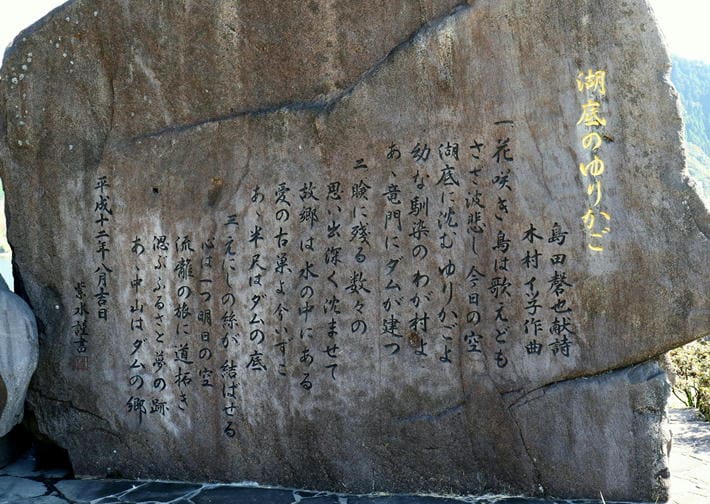 湖底のゆりかご
島田磬也献詩
木村イ予作曲
一 花咲き鳥は歌えども
さざ波悲し今日の空
湖底に沈むゆりかごよ
幼な馴染のわが村よ
あゝ竜門にダムが建つ
二 瞼に残る数々の
思い出深く沈ませて
故郷は水の中にある
愛の古巣よ今いずこ
あゝ半尺はダムの底
三 えにしの糸が結ばせる
心は一つ明日の空
流龍の旅に道拓き
偲ぶふるさと夢の跡
あゝ中山はダムの郷
平成十二年八月吉日
紫水謹書